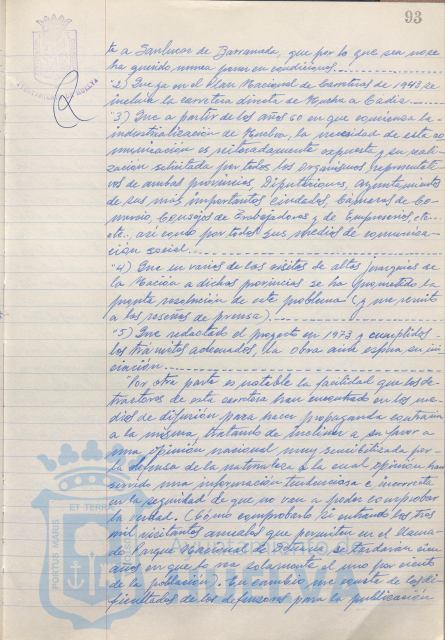 93
AYUNTAMIENTO DE HUELVA
te a Sanlucar de Barrameda, que por lo que sea no se
ha querido nunca poner en condiciones.
"2) Que ya en el Plan Nacional de Carreteras de 1943 se
incluía la carretera directa de Huelva a Cadiz.
"3) Que a partir de los años 60 en que comienza la
industrialización de Huelva, la necesidad de esta co
municación es reiteradamente expuesta y su reali-
zación solicitada por todos los Organismos representati
vos de ambas provincias, Diputaciones, Ayuntamientos
de sus más importantes ciudades, Cámaras de Co-
mercio, Consejos de Trabajadores y de Empresarios, etc.-
etc., así como por todos sus medios de comunica-
ción social.
"4) Que en varias de las visitas de altos jerarquías de
la Nación a dichas provincias se ha prometido la
pronta resolución de este problema (y me remito
a las reseñas de prensa).
"5) Que redactado el proyecto en 1973 y cumplidos
los trámites adecuados, la obra aún espera su ini
ciación.
"Por otra parte es notable la facilidad que los de-
tractores de esta carretera han encontrado en los me-
dios de difusión para hacer propaganda contraria
a la misma, tratando de inclinar a su favor a
una opinión nacional muy sensibilizada por
la defensa de la naturaleza a la cual opinión han
servido una información tendenciosa e incorrecta
en la seguridad de que no van a poder comprobar
la verdad. (Cómo comprobarlo si entrando los tres
mil visitantes anuales que permiten en el llama-
do Parque Nacional de Doñana, se tardarán cien
años en que lo vea solamente el uno por ciento
de la población). En cambio, me consta de las di-
ficultades de los defensores para la publicación
PORTUS MARIS ET TERRAE